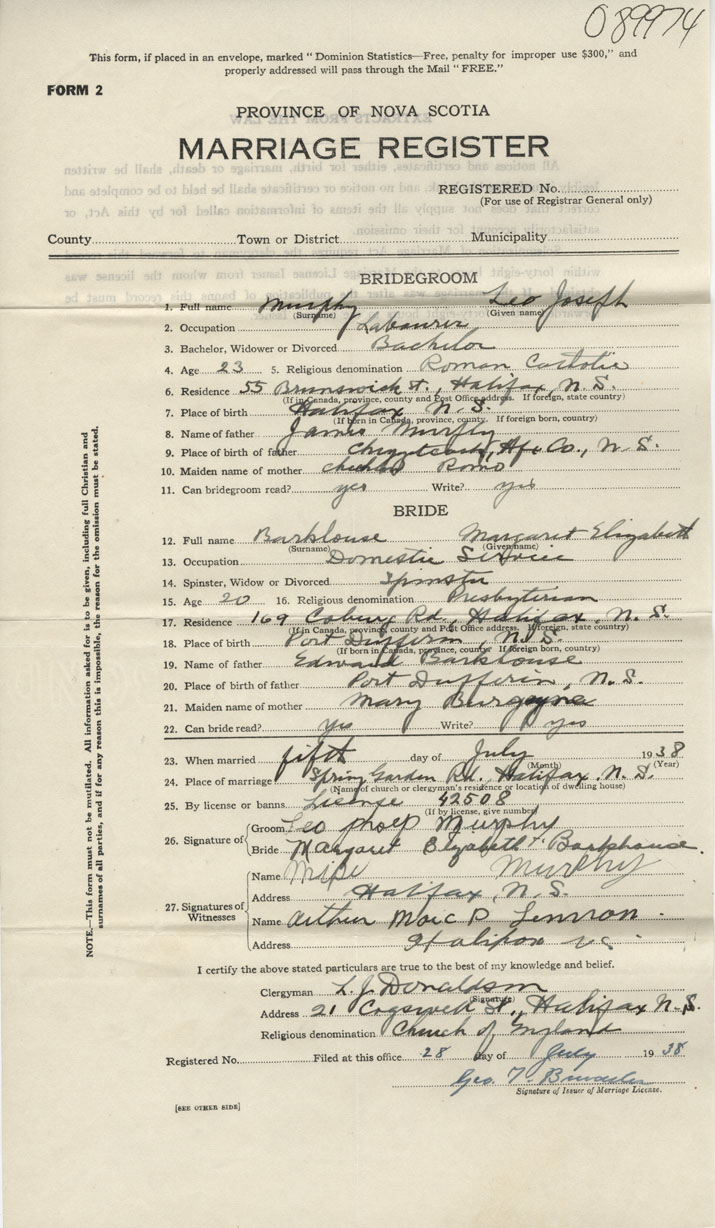 089974
This form, if placed in an envelope, marked "Dominion Statistics—Free, penalty for improper use $300," and
properly addressed will pass through the Mail "FREE."
FORM 2
PROVINCE OF NOVA SCOTIA
MARRIAGE REGISTER
REGISTERED No.
(For use of Registrar General only)
County Town or District Municipality
BRIDEGROOM
1. Full name Murphy Leo Joseph
(Surname) (Given name)
2. Occupation Labourer
3. Bachelor, Widower or Divorced Bachelor
4. Age 23 5. Religious denomination Roman Catholic
6. Residence 55 Brunswick St., Halifax, N.S.
(If in Canada, province, county and Post Office address. If foreign, state country)
7. Place of birth Halifax N.S.
(If born in Canada, province, county. If foreign born, country)
8. Name of father James Murphy
9. Place of birth of father Hfx Co., N.S.
10. Maiden name of mother Romo
11. Can bridegroom read? yes Write? yes
BRIDE
12. Full name Barkhouse Margaret Elizabeth
(Surname) (Given name)
13. Occupation Domestic Service
14. Spinster, Widow or Divorced Spinster
15. Age 20 16. Religious denomination Presbyterian
17. Residence 169 Coburg Rd., Halifax, N.S.
(If in Canada, province, county and Post Office address. If foreign, state country)
18. Place of birth Port Dufferin, N.S.
(If born in Canada, province, county. If foreign born, country)
19. Name of father Edward Barkhouse
20. Place of birth of father Port Dufferin, N.S.
21. Maiden name of mother Mary Burgoyne
22. Can bride read? yes Write? yes
23. When married fifth day of July 1938
(Month) (Year)
24. Place of marriage Spring Garden Rd. Halifax, N.S.
(Name of church or clergyman's residence or location of dwelling house)
25. By license or banns License 42508
(If by license, give number)
26. Signature of Groom Leo Murphy
Bride Margaret Elizabeth Barkhouse.
27. Signatures of Witnesses Name Murphy
Address Halifax, N.S.
Name Arthur
Address Halifax NS
I certify the above stated particulars are true to the best of my knowledge and belief.
Clergyman L. J. Donaldson
(Signature)
Address 21 Cogswell St., Halifax N.S.
Religious denomination Church of England
Registered No. Filed at this office 28 day of July 1938
Geo. T.
Signature of Issuer of Marriage License.
[SEE OTHER SIDE]
NOTE.—This form must not be mutilated. All information asked for is to be given, including full Christian and
surnames of all parties, and if for any reason this is impossible, the reason for the omission must be stated.